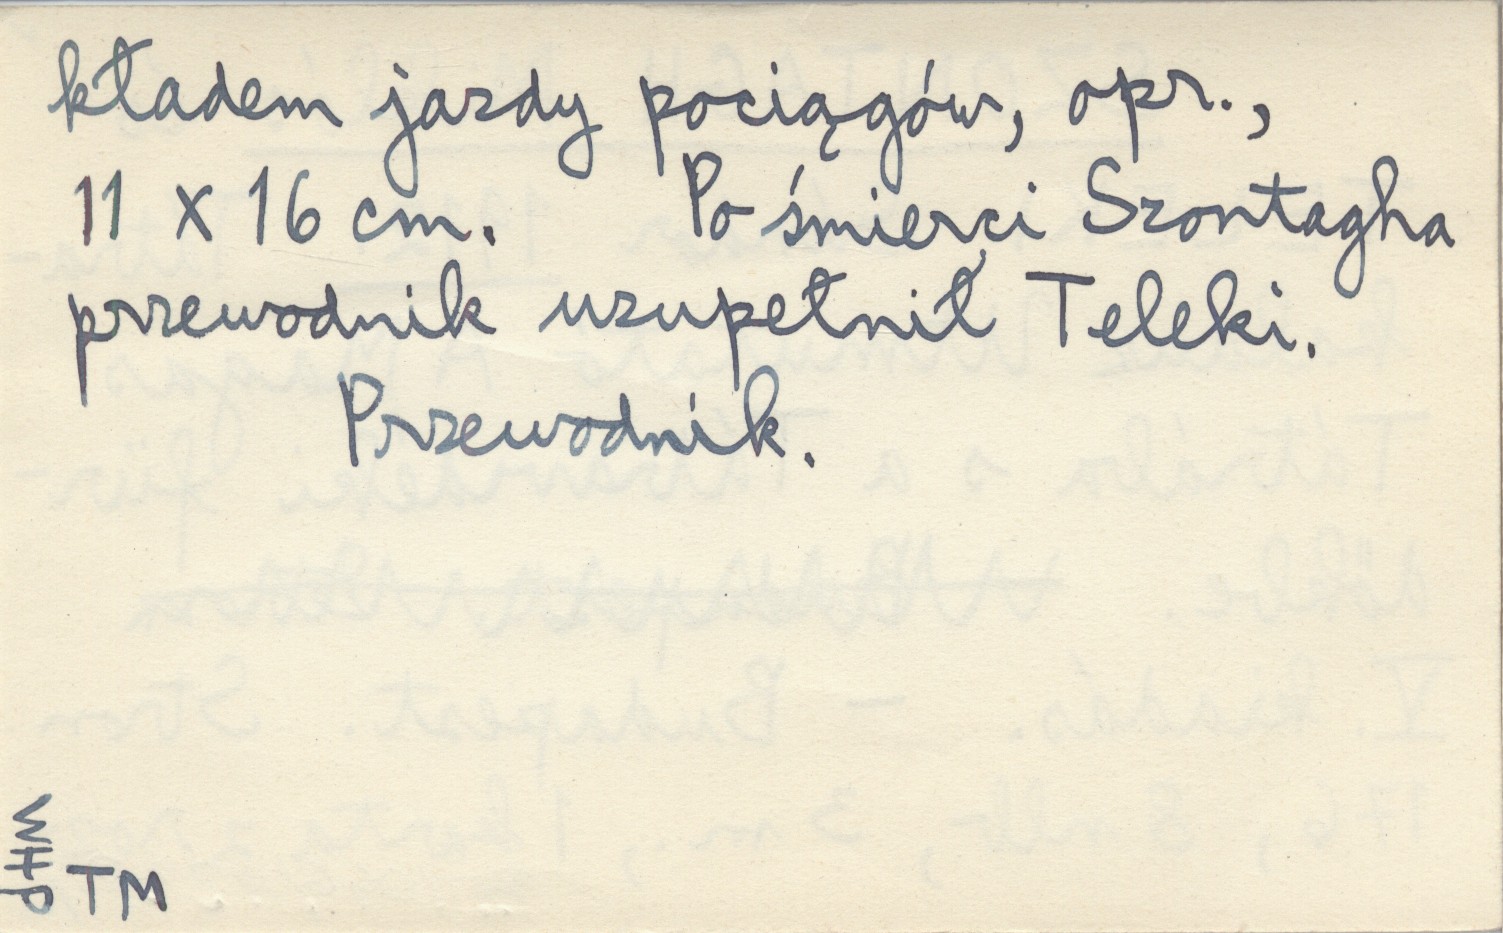 kładem jazdy pociągów, opr.,
11 x 16 cm. Po śmierci Szontagha
przewodnik uzupełnił Teleki.
Przewodnik.
WHP
TM